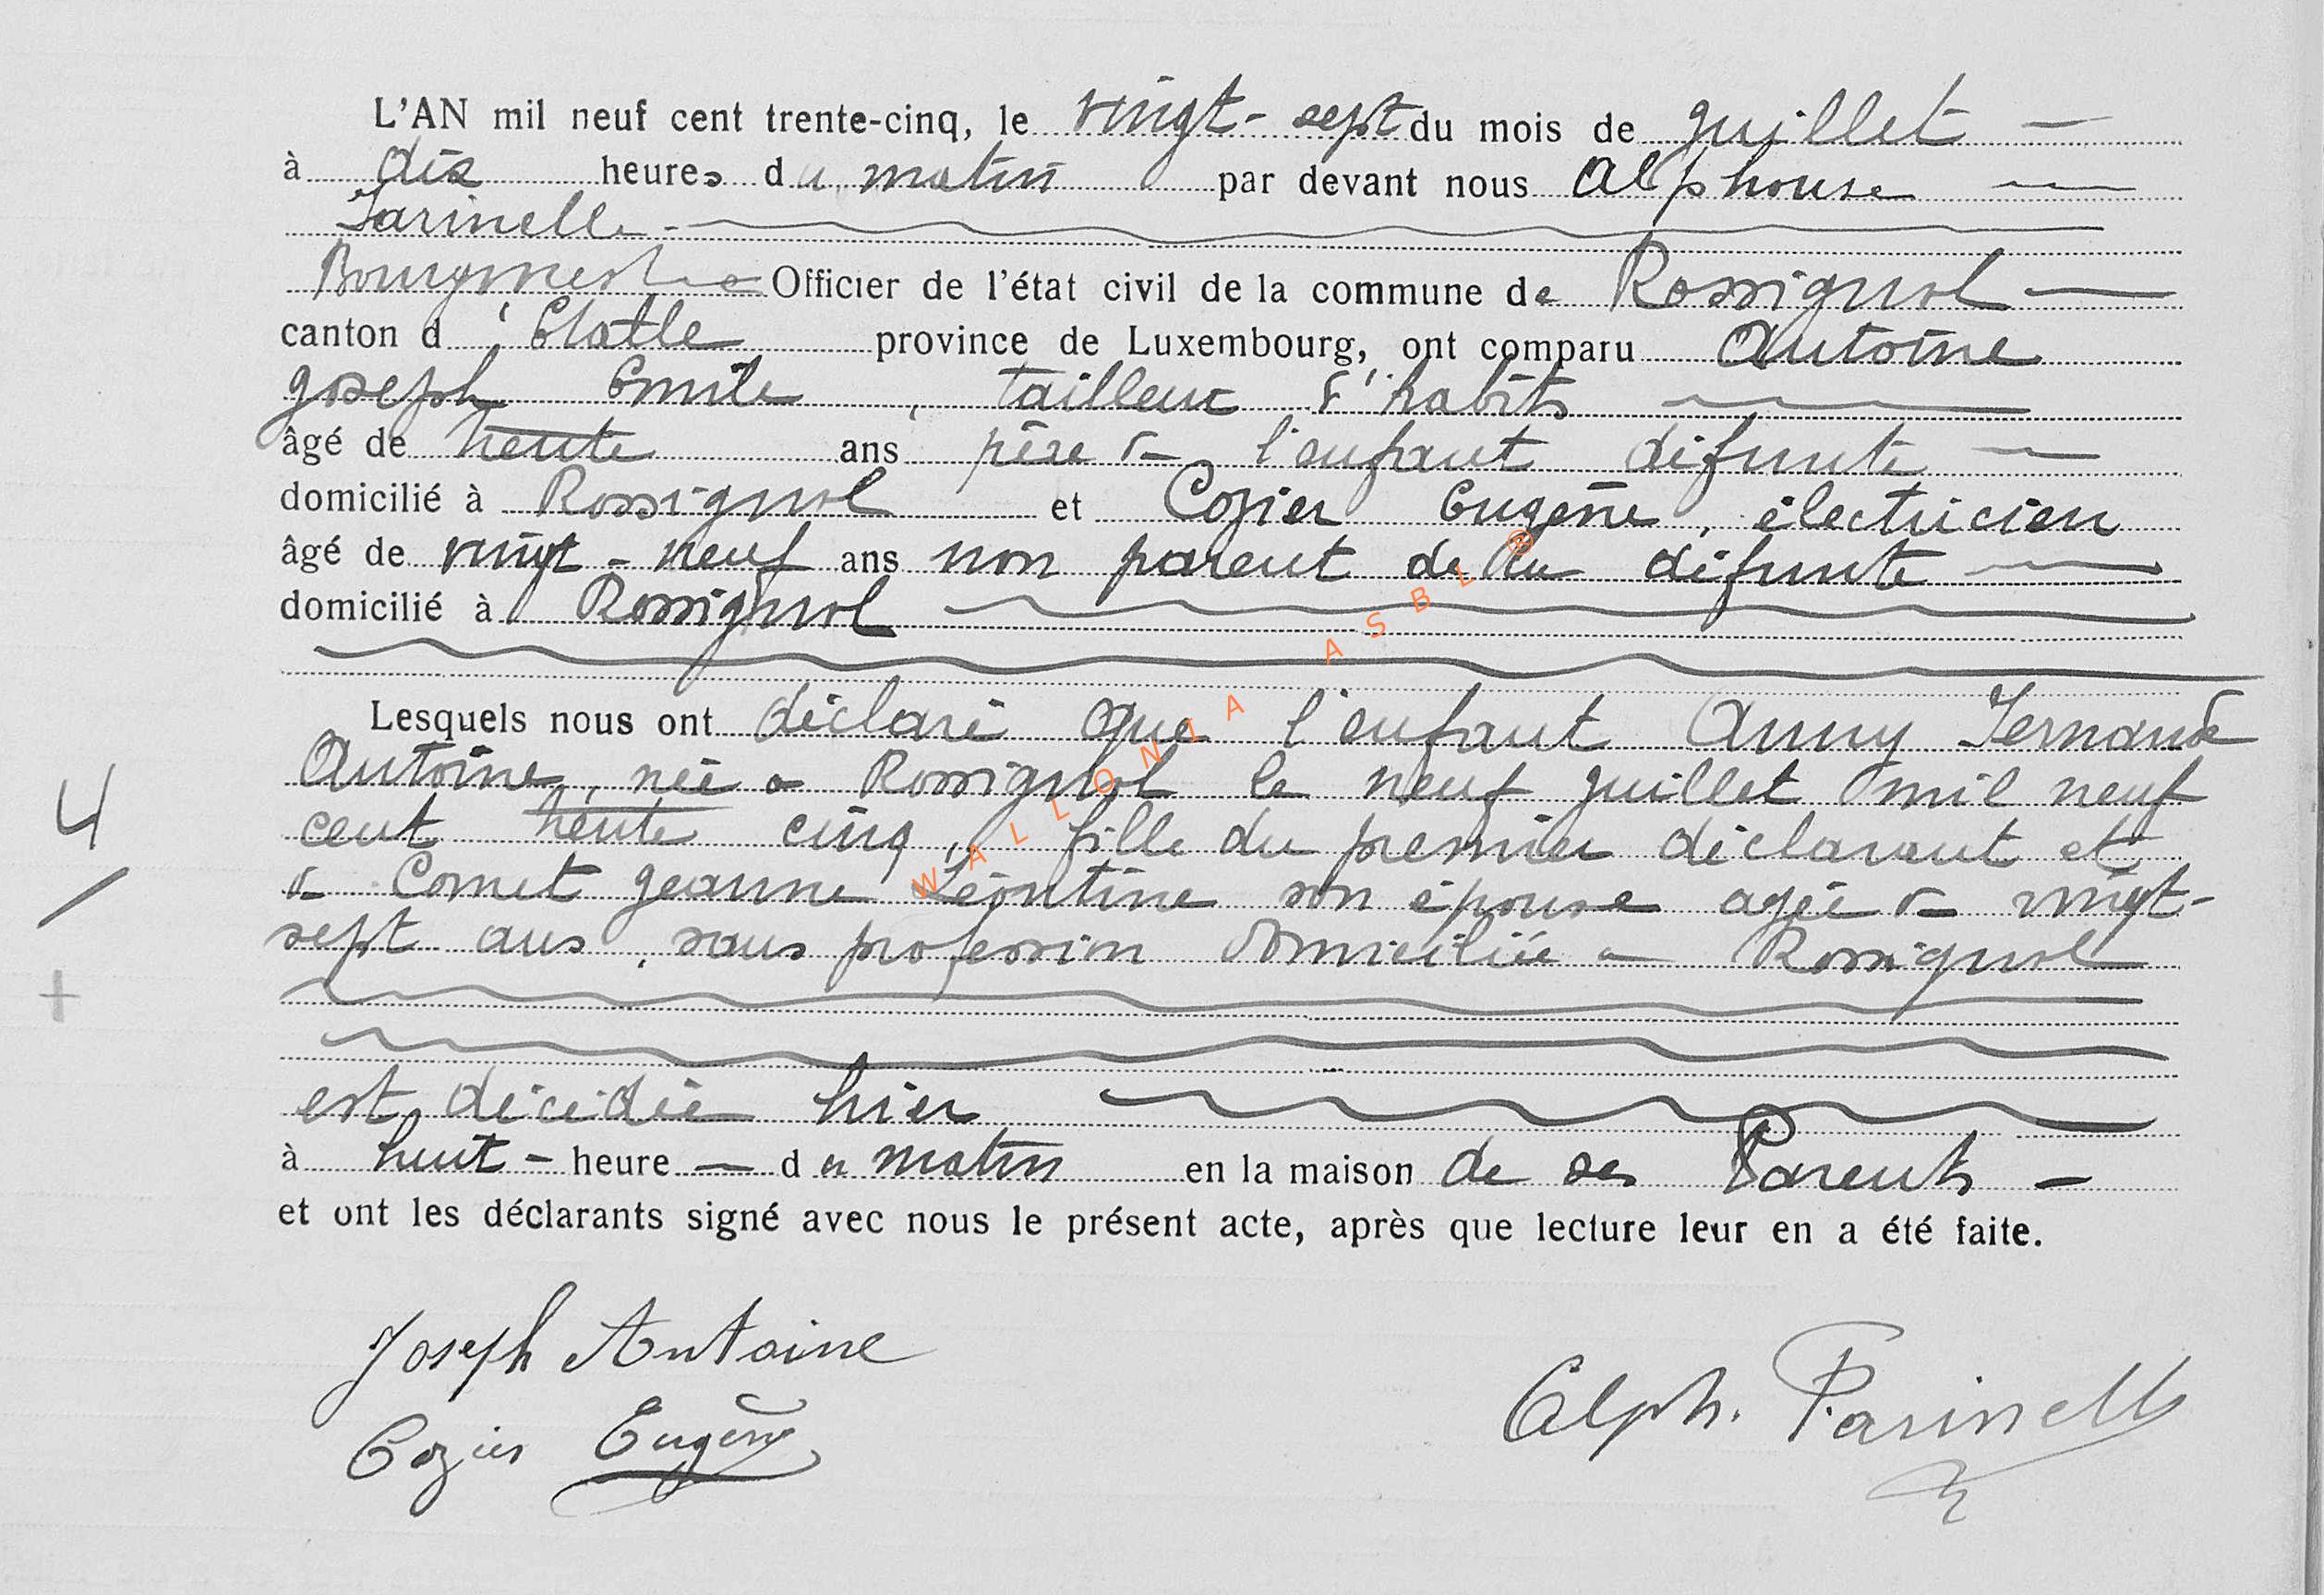 L'AN mil neuf cent trente-cinq, le vingt-sept du mois de juillet
à dix heures du matin par devant nous Alphonse
Farinelle
Bourgmestre Officier de l'état civil de la commune de Rossignol
canton d'Etalle province de Luxembourg, ont comparu Antoine
Joseph Emile, tailleur d'habits
âgé de trente ans père de l'enfant défunte
domicilié à Rossignol et Cozier Eugène, électricien
âgé de vingt-neuf ans non parent de la défunte
domicilié à Rossignol
Lesquels nous ont déclaré que l'enfant Anny Fernande
Antoine, née à Rossignol le neuf juillet mil neuf
cent trente cinq, fille du premier déclarant et
de Cornet Jeanne Léontine son épouse agée de vingt-
sept ans, sans profession domiciliée à Rossignol
est décédée hier
à huit heure du matin en la maison de ses Parents
et ont les déclarants signé avec nous le présent acte, après que lecture leur en a été faite.
Joseph Antoine
Cozier Eugène
Alph. Farinelle
4
WALLONIA ASBL ®